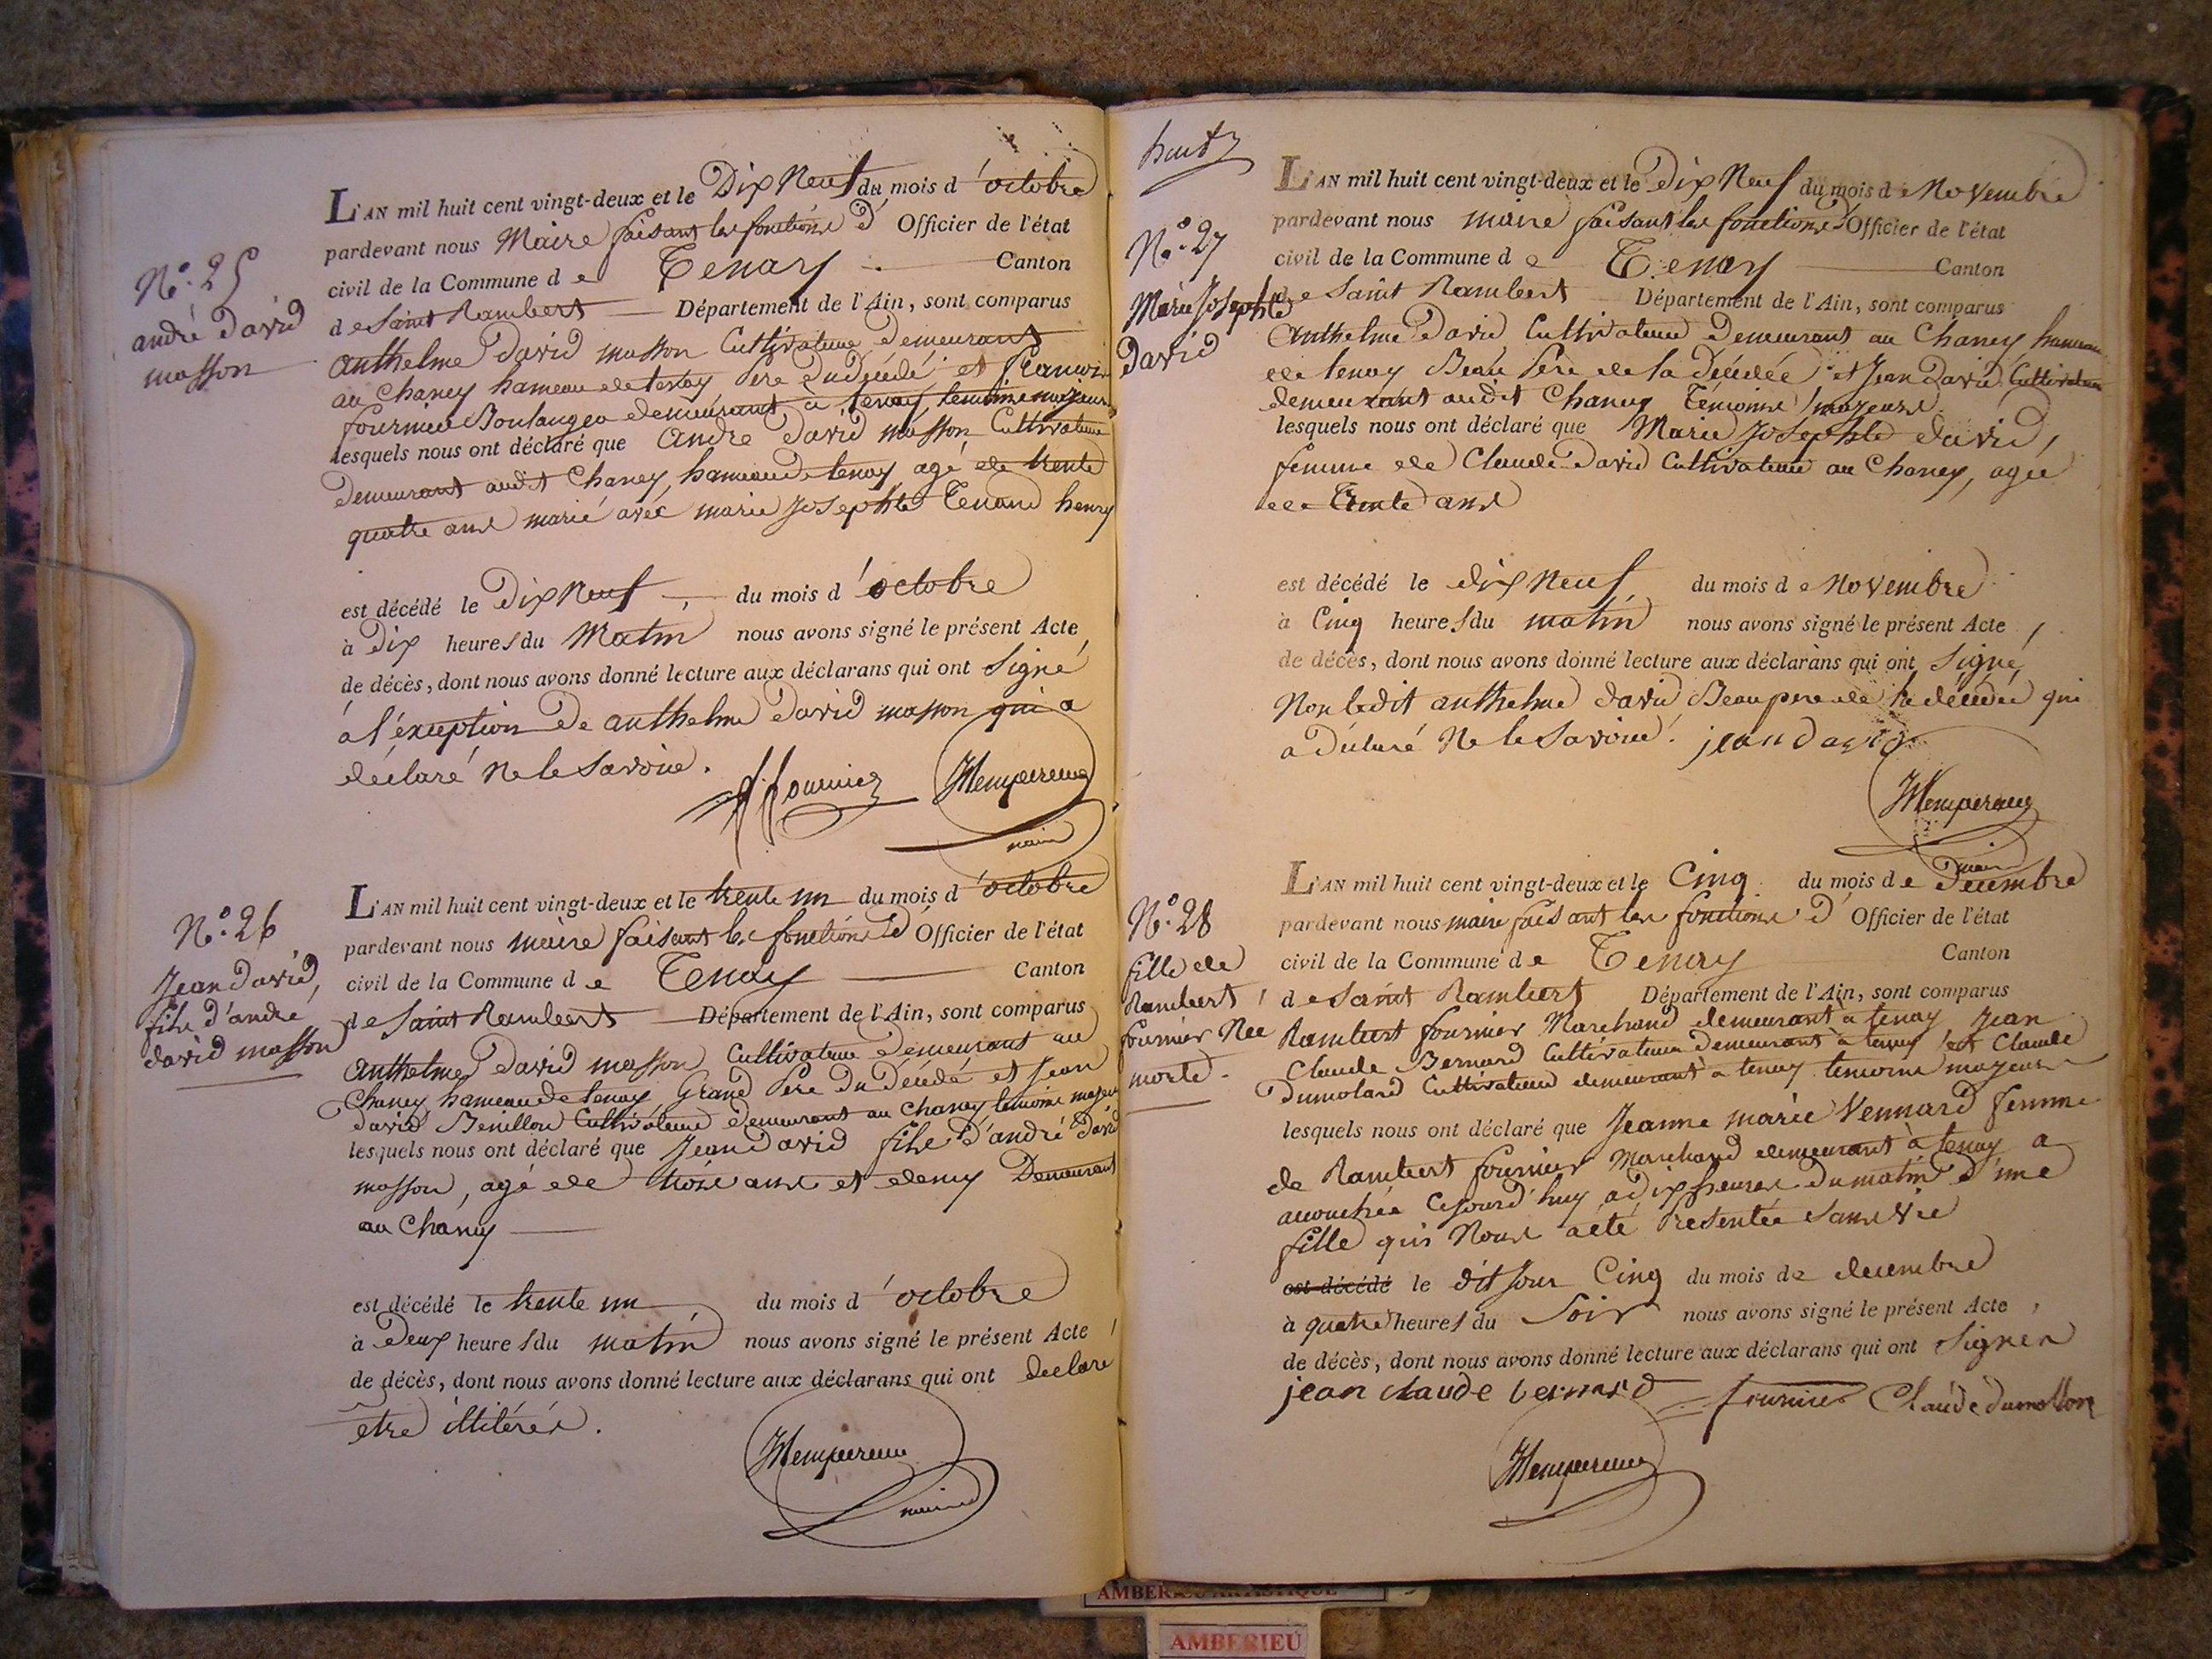 N.° 25
andré david
masson
L'AN mil huit cent vingt-deux et le Dix Neuf du mois d'octobre
pardevant nous Maire faisant les fonctions d' Officier de l'état
civil de la Commune de Tenay Canton
de Saint Rambert Département de l'Ain, sont comparus
anthelme David masson Cultivateur Demeurant
au Chaney hameau de tenay Pere Du décédé et francois
fournier Boulanger demeurant a tenay, temoins majeurs
lesquels nous ont déclaré que andre david masson Cultivateur
Demeurant audit Chaney, hameau de tenay agé de trente
quatre ans marié avec marie Josephte Tenand henry
est décédé le Dix Neuf du mois d'octobre
à Dix heures du Matin nous avons signé le présent Acte
de décès, dont nous avons donné lecture aux déclarans qui ont Signé
a l'éxception De anthelme David masson qui a
déclaré Ne le Savoir.
f. fournier
maire
N.° 26
Jean David,
fils d'andre
david masson
L'AN mil huit cent vingt-deux et le trente un du mois d'octobre
pardevant nous maire faisant les fonctions d' Officier de l'état
civil de la Commune de Tenay Canton
de Saint Rambert Département de l'Ain, sont comparus
anthelme David masson Cultivateur Demeurant au
Chaney hameau de tenay, Grand Pere Du Décédé et Jean
David Benillon Cultivateur Demeurant au Chaney temoins majeurs
lesquels nous ont déclaré que Jean David fils d'andré David
masson, agé de trois ans et demy Demeurant
au Chaney
est décédé le trente un du mois d'octobre
à Deux heures du matin nous avons signé le présent Acte,
de décès, dont nous avons donné lecture aux déclarans qui ont declare
etre illitérés.
maire
N.° 27
Marie Josephte
David
L'AN mil huit cent vingt-deux et le Dix Neuf du mois de Novembre
pardevant nous maire faisant les fonctions d' Officier de l'état
civil de la Commune de Tenay Canton
de Saint Rambert Département de l'Ain, sont comparus
anthelme David Cultivateur Demeurant au Chaney hameau
de tenay Beau Pere de la Décédée et Jean David Cultivateur
demeurant audit Chaney Témoins majeurs
lesquels nous ont déclaré que Marie Josephte david,
femme de Claude David Cultivateur au Chaney, agée
de Trente ans
est décédé le dix Neuf du mois de Novembre
à Cinq heures du matin nous avons signé le présent Acte,
de décès, dont nous avons donné lecture aux déclarans qui ont signé,
Non ledit anthelme david Beau pere de la décédée qui
a déclaré Ne le Savoir. jean david
maire
N.° 28
fille de
Rambert
fournier Née
morte.
L'AN mil huit cent vingt-deux et le Cinq du mois de Decembre
pardevant nous maire faisant les fonctions d' Officier de l'état
civil de la Commune de Tenay Canton
de Saint Rambert Département de l'Ain, sont comparus
Rambert fournier Marchand demeurant a tenay, Jean
Claude Bernard Cultivateur Demeurant à tenay et Claude
Dumolard Cultivateur demeurant a tenay temoins majeurs
lesquels nous ont déclaré que Jeanne marie Vennard femme
de Rambert fournier Marchand demeurant à tenay a
accouchée Cejourd'huy a dix heures du matin d'une
fille qui Nous a été Presentée Sans Vie
est décédé le dit Jour Cinq du mois de decembre
à quatre heures du Soir nous avons signé le présent Acte,
de décès, dont nous avons donné lecture aux déclarans qui ont Signer
jean claude bernard fournier Claude dumollar
AMBERIEU ARTASTIQUE
AMBERIEU